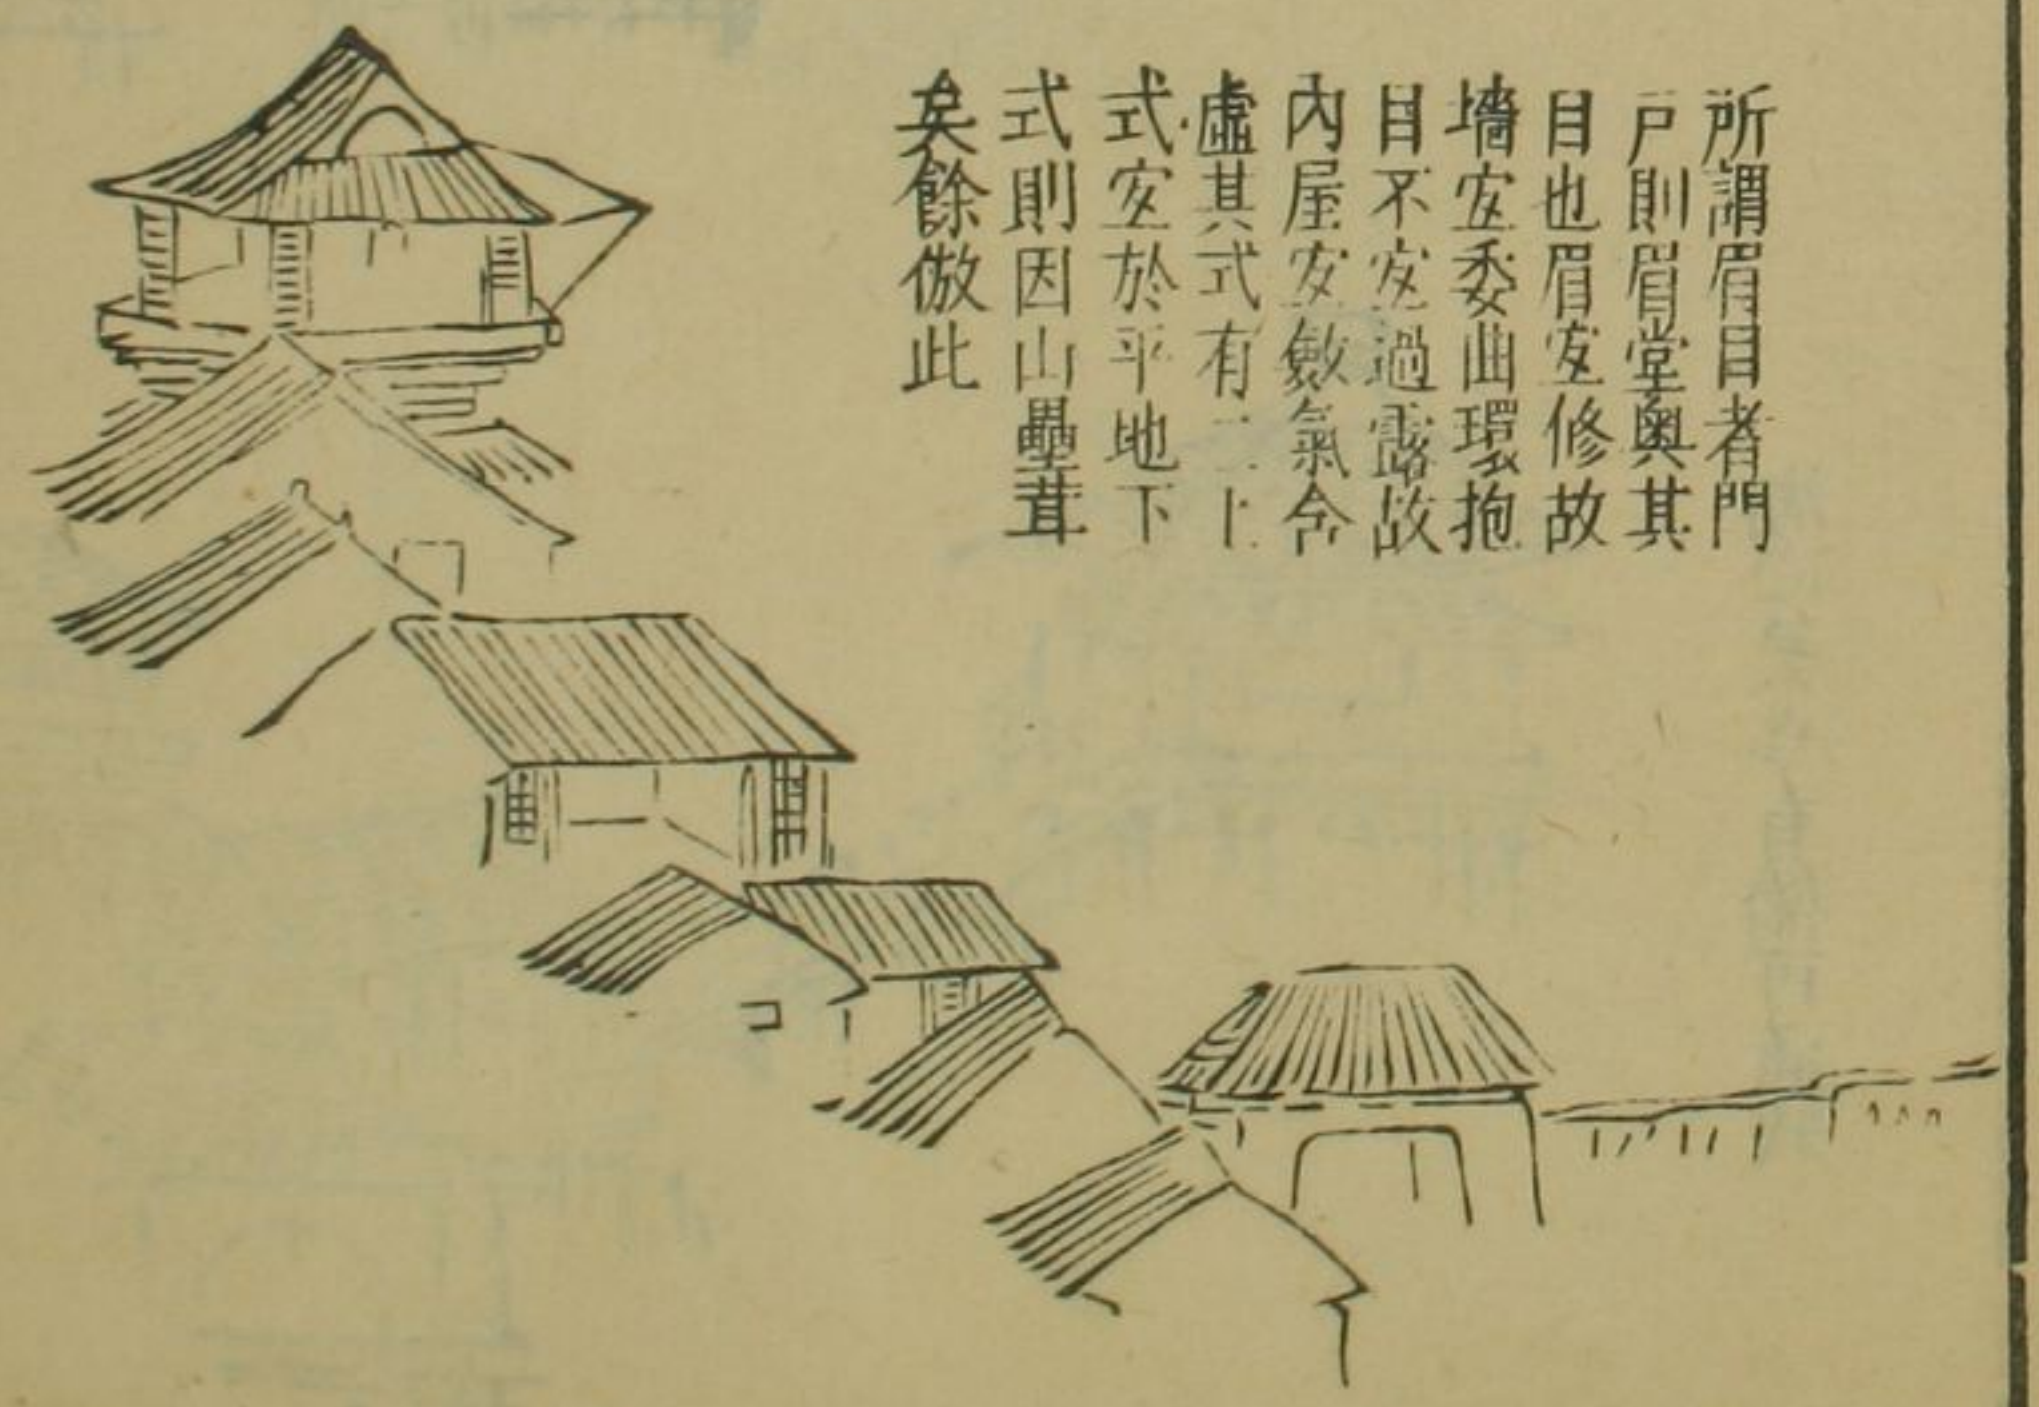 所謂眉目者門
戶則眉堂奧其
目也眉宜修故
墻宜委曲環抱
目不宜過露故
內屋宜斂氣含
虛其式有二上
式宜於平地下
式則因山壘葺
矣餘倣此